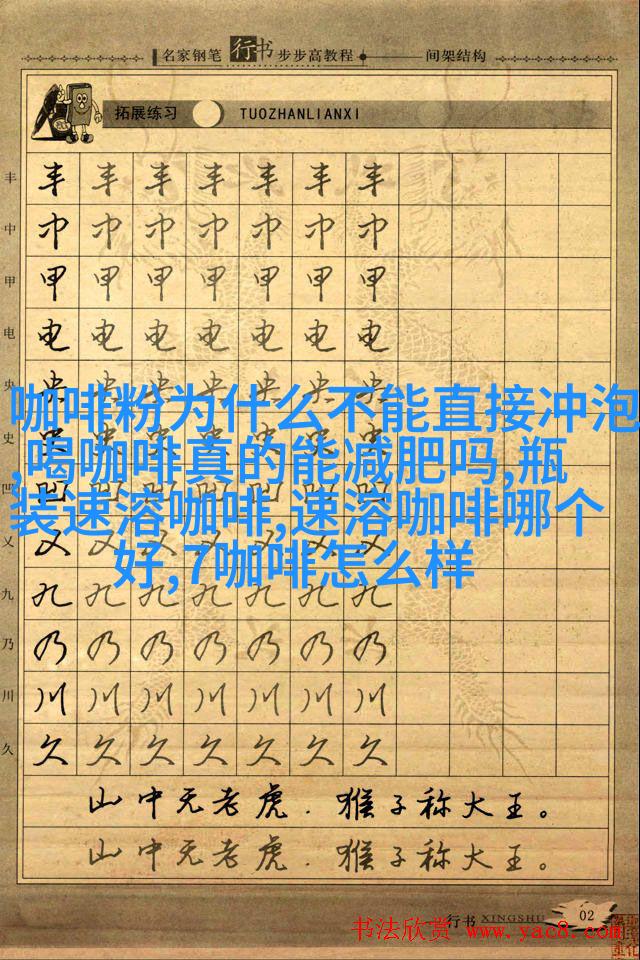 名家钢笔行书步步高教程 间架结构
拓展练习 TUOZHANLIANXI
丰 丰 丰 丰 丰 丰 丰 丰
中 中 中 中 中 中 中 中
甲 甲 甲 甲 甲 甲 甲 甲
电 电 电 电 电 电 电 电
央 央 央 央 央 央 央 央
咖啡粉为什么不能直接冲泡
史 史 史 史 史 史 史 史
,喝咖啡真的能减肥吗,瓶
凹 凹 凹 凹 凹 凹 凹 凹
装速溶咖啡,速溶咖啡哪个
乂 乂 乂 乂 乂 乂 乂 乂
好,7咖啡怎么样
九 九 九 九 九 九 九 九
乃 乃 乃 乃 乃 乃 乃 乃
川 川 川 川 川 川 川 川
久 久 久 久 久 久 久 久
山中无老虎．猴子称大王。
山中无老虎．猴子称大王。
行书 XINGSHU 02
书法欣赏 www.yac8.com